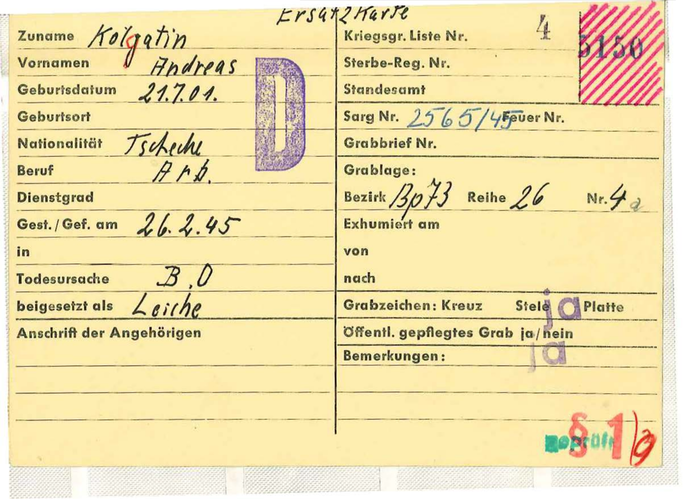 Ersatzkarte
Zuname Kolgatin
Vornamen Andreas
Geburtsdatum 21.7.01.
Geburtsort
Nationalität Tscheche
Beruf Arb.
Dienstgrad
Gest./Gef. am 26.2.45
in
Todesursache B.O
beigesetzt als Leiche
Anschrift der Angehörigen
D
Kriegsgr. Liste Nr. 4 5150
Sterbe-Reg. Nr.
Standesamt
Sarg Nr. 2565/45 Feuer Nr.
Grabbrief Nr.
Grablage:
Bezirk Bp73 Reihe 26 Nr. 4a
Exhumiert am
von
nach
Grabzeichen: Kreuz Stele ja Platte
Öffentl. gepflegtes Grab ja/nein
ja
Bemerkungen:
geprüft § 1/9